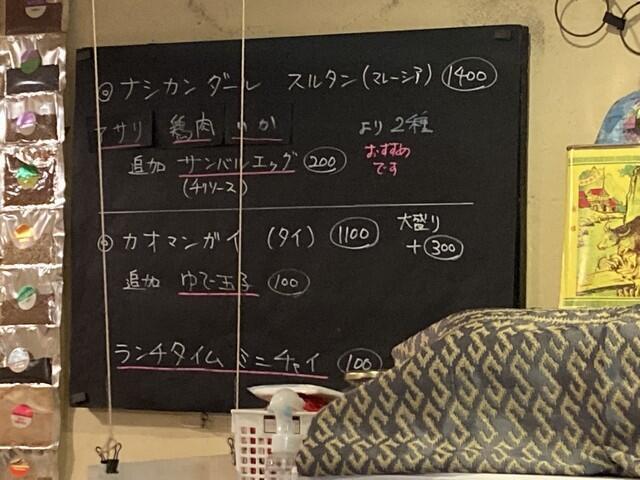 ◎ ナシカンダール スルタン(マレーシア) 1400
アサリ 鶏肉 いか より2種
おすすめ
です
追加 サンバルエッグ 200
(チリソース)
◎ カオマンガイ (タイ) 1100 大盛り
+300
追加 ゆで玉子 100
ランチタイム ミニチャイ 100